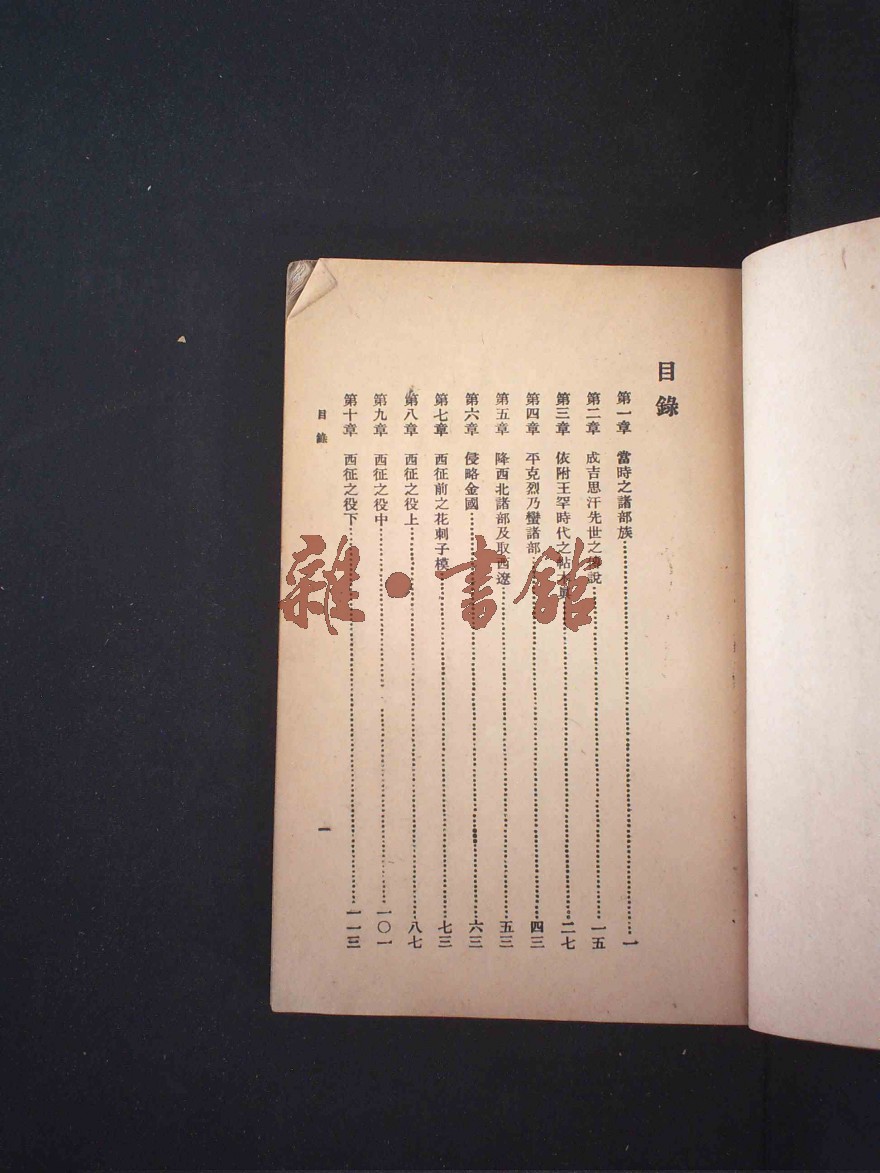 目錄
第一章 當時之諸部族……一
第二章 成吉思汗先世之傳說……一五
第三章 依附王罕時代之帖木真……二七
第四章 平克烈乃蠻諸部……四三
第五章 降西北諸部及取西遼……五三
第六章 侵略金國……六三
第七章 西征前之花剌子模……七三
第八章 西征之役上……八七
第九章 西征之役中……一〇一
第十章 西征之役下……一一三
目錄
一
雜·書館